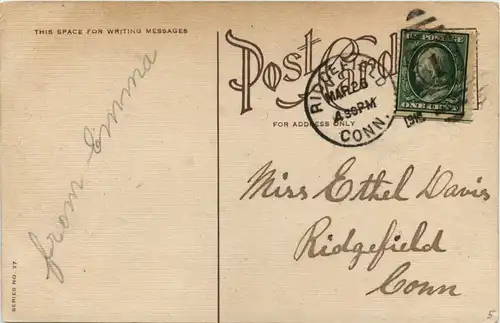 THIS SPACE FOR WRITING MESSAGES
Post Card
FOR ADDRESS ONLY
RIDGEFIELD
MAR 26
4 30 PM
CONN.
U.S. POSTAGE
ONE CENT
from Emma
Miss Ethel Davis
Ridgefield
Conn
SERIES NO. 27
5